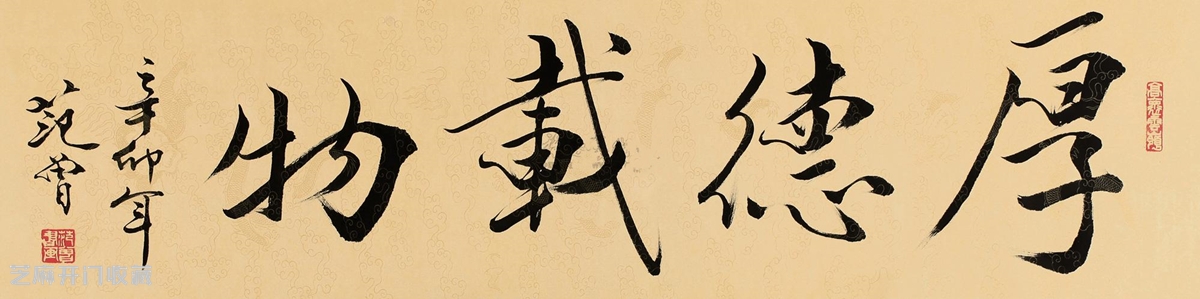 厚德載物
辛卯年
范曾
芝麻开门收藏